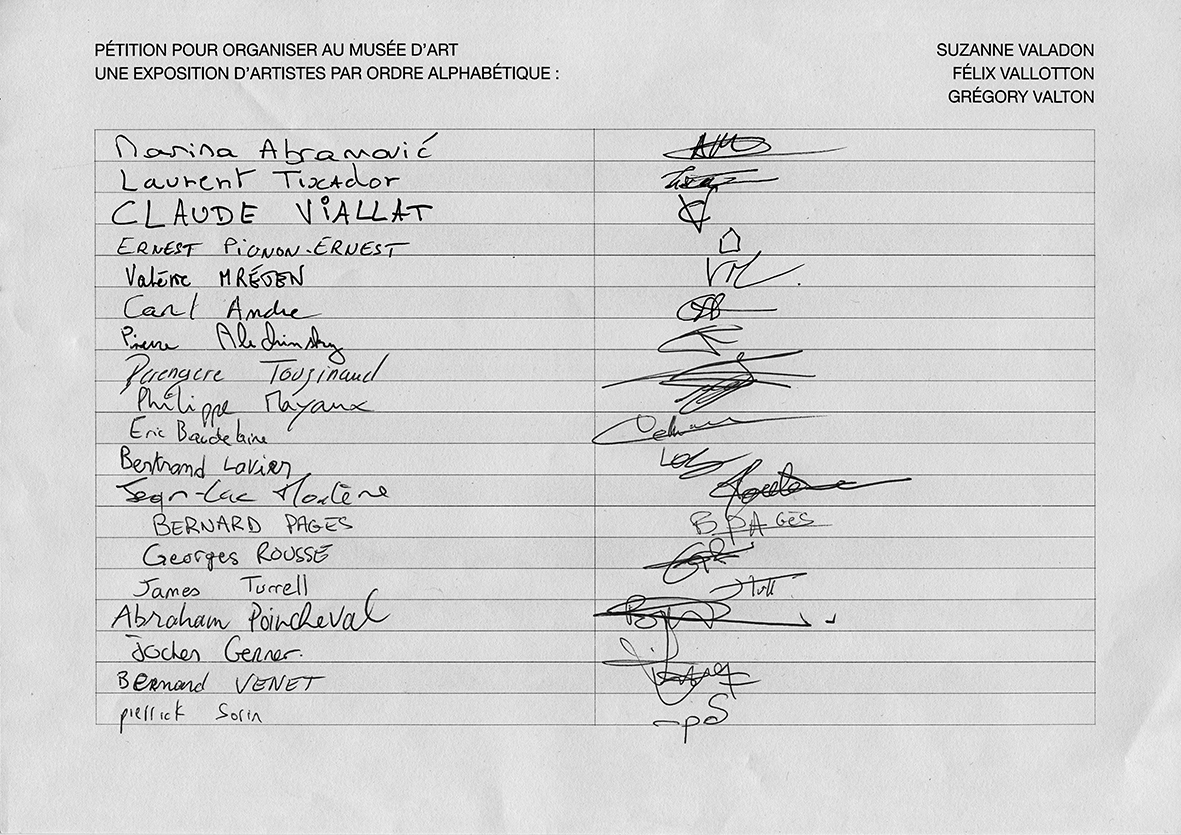 PÉTITION POUR ORGANISER AU MUSÉE D'ART
UNE EXPOSITION D'ARTISTES PAR ORDRE ALPHABÉTIQUE :
SUZANNE VALADON
FÉLIX VALLOTTON
GRÉGORY VALTON
Marina Abramović
Laurent TixAdor
CLAUDE ViALLAT
ERNEST PIGNON-ERNEST
Valérie MRÉJEN
Carl Andre
Pierre Alechinsky
Touzinaud
Philippe Mayaux
Eric Baudelaire
Bertrand Lavier
Jean-Luc Moulène
BERNARD PAGES B PAGES
Georges ROUSSE
James Turrell
Abraham Poincheval
Jochen Gerner.
Bernard VENET
pierrick Sorin -pS